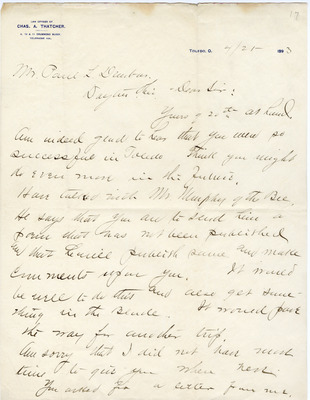 LAW OFFICES OF
CHAS. A. THATCHER,
TOLEDO, O. 4/25 1893
Mr Paul L Dunbar,
Dayton Dear Sir:
Yours of 20th at hand
Am indeed glad to hear that you were so
successful in Toledo Thank you might
do even more in the future.
Have talked with Mr Murphy of the Bee,
He says that you are to send him a
poem that has not been published
and that he will publish same and make
Comments upon you. It would
be well to do this and also get some-
thing in the Blade. It would pave
the way for another trip.
Am sorry that I did not have more
time to give you when here.
You asked for a letter from me.